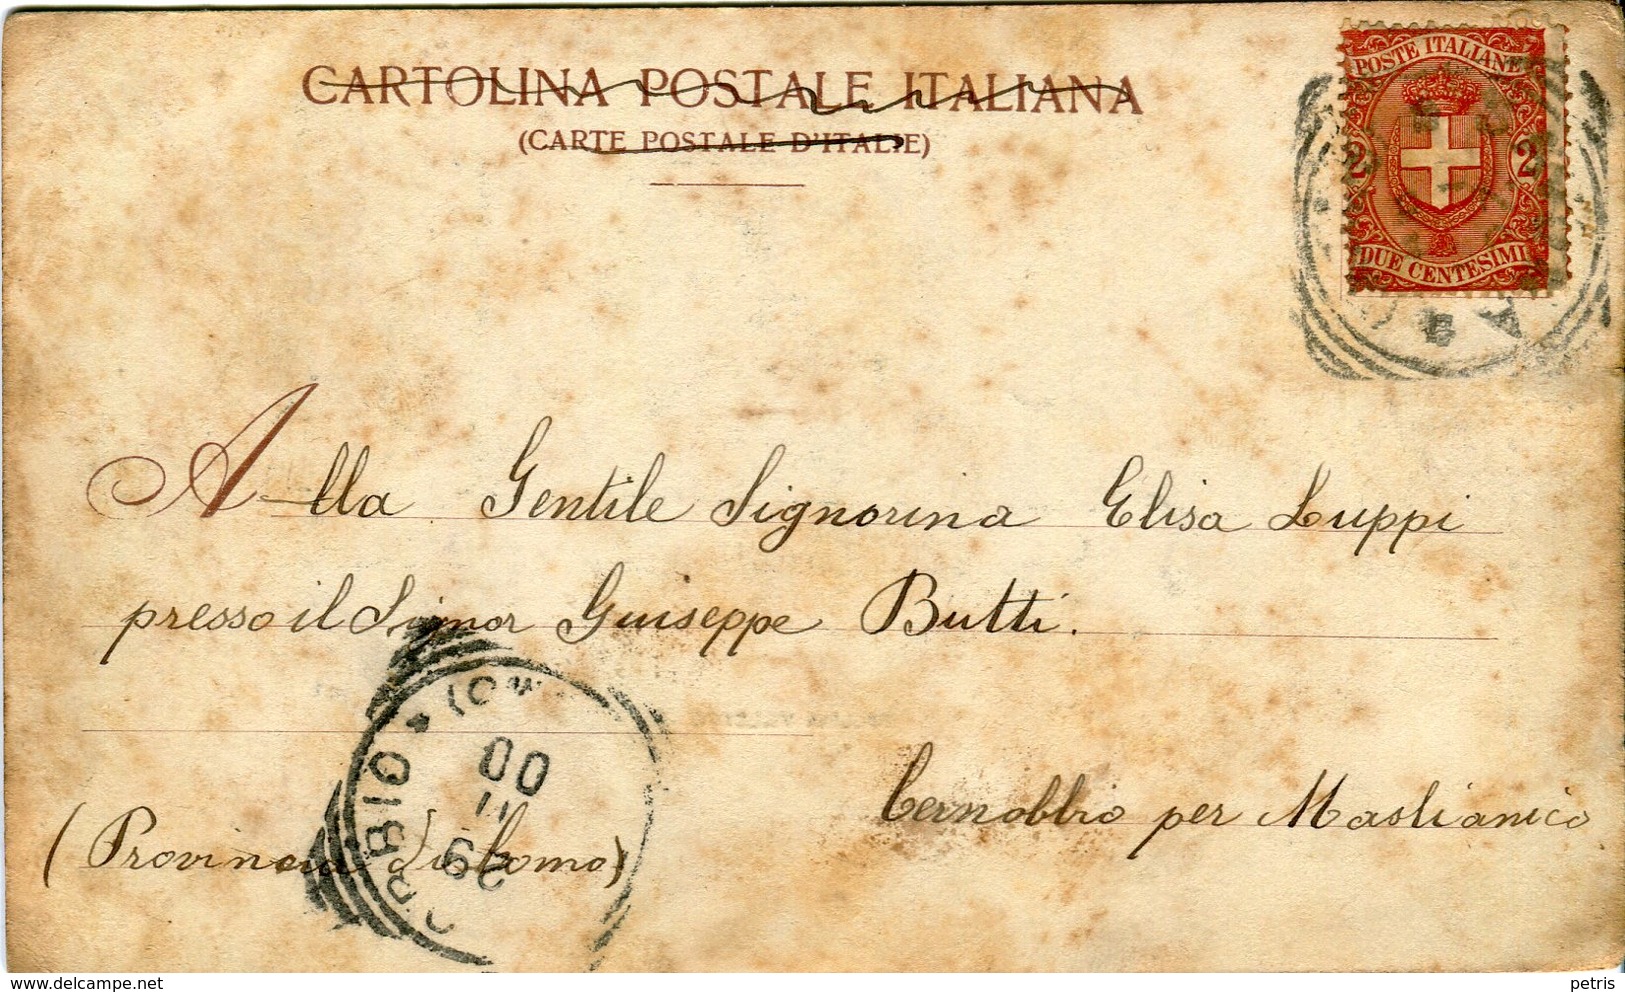 CARTOLINA POSTALE ITALIANA
(CARTE POSTALE D'ITALIE)
POSTE ITALIANE
2 2
DUE CENTESIMI
Alla Gentile Signorina Elisa Luppi
presso il Signor Giuseppe Butti.
Cernobbio per Maslianico
(Provincia di Como)
OBBIO * (COMO
29
11
00
petris